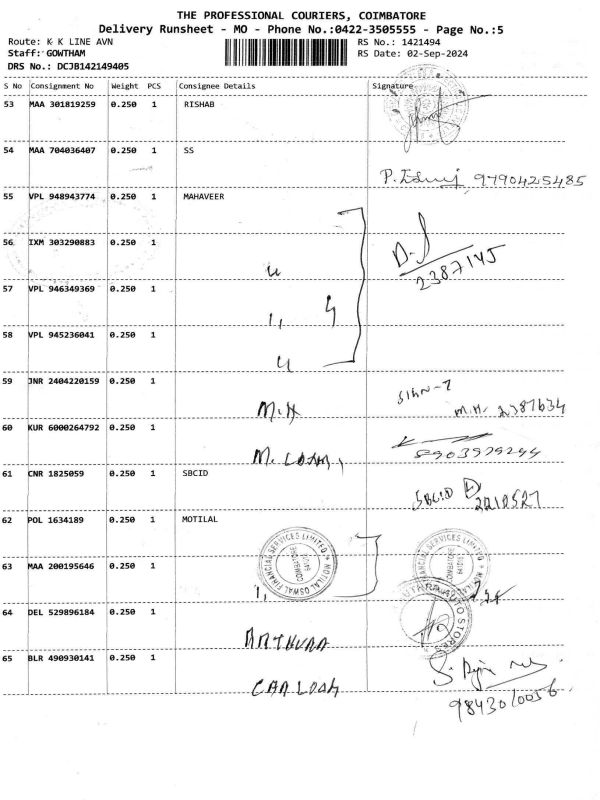 THE PROFESSIONAL COURIERS, COIMBATORE
Delivery Runsheet - MO - Phone No.:0422-3505555 - Page No.:5
Route: K K LINE AVN RS No.: 1421494
Staff: GOWTHAM RS Date: 02-Sep-2024
DRS No.: DCJB142149405
S No Consignment No Weight PCS Consignee Details Signature
53 MAA 301819259 0.250 1 RISHAB
54 MAA 704036407 0.250 1 SS
9790425485
55 VPL 948943774 0.250 1 MAHAVEER
56 IXM 303290883 0.250 1
2387145
57 VPL 946349369 0.250 1
58 VPL 945236041 0.250 1
59 JNR 2404220159 0.250 1
M.H M.H. 2387634
60 KUR 6000264792 0.250 1
8903979244
61 CNR 1825059 0.250 1 SBCID
SBCID 2210527
62 POL 1634189 0.250 1 MOTILAL
MOTILAL OSWAL FINANCIAL SERVICES LIMITED
COIMBATORE
63 MAA 200195646 0.250 1
64 DEL 529896184 0.250 1
65 BLR 490930141 0.250 1
9843010056